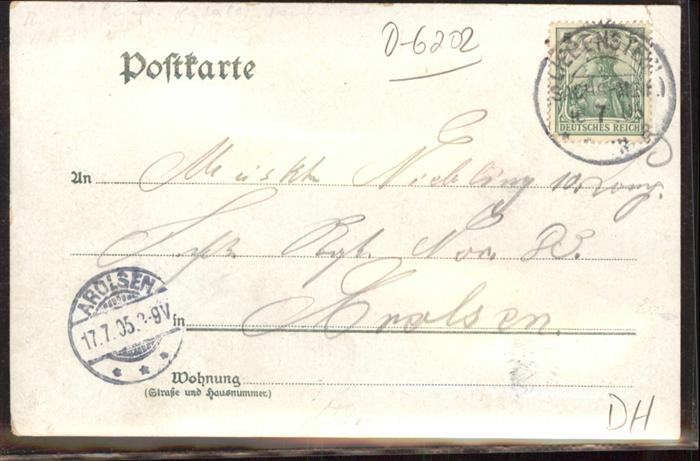 D-6202
Postkarte
LIEBENSTEIN
7
DEUTSCHES REICH
An Muskt. Niebling 10. Comp.
Inf. Rgt. Nro. 83.
in Arolsen.
AROLSEN
17.7.05.8-9V
Wohnung
(Straße und Hausnummer.)
DH